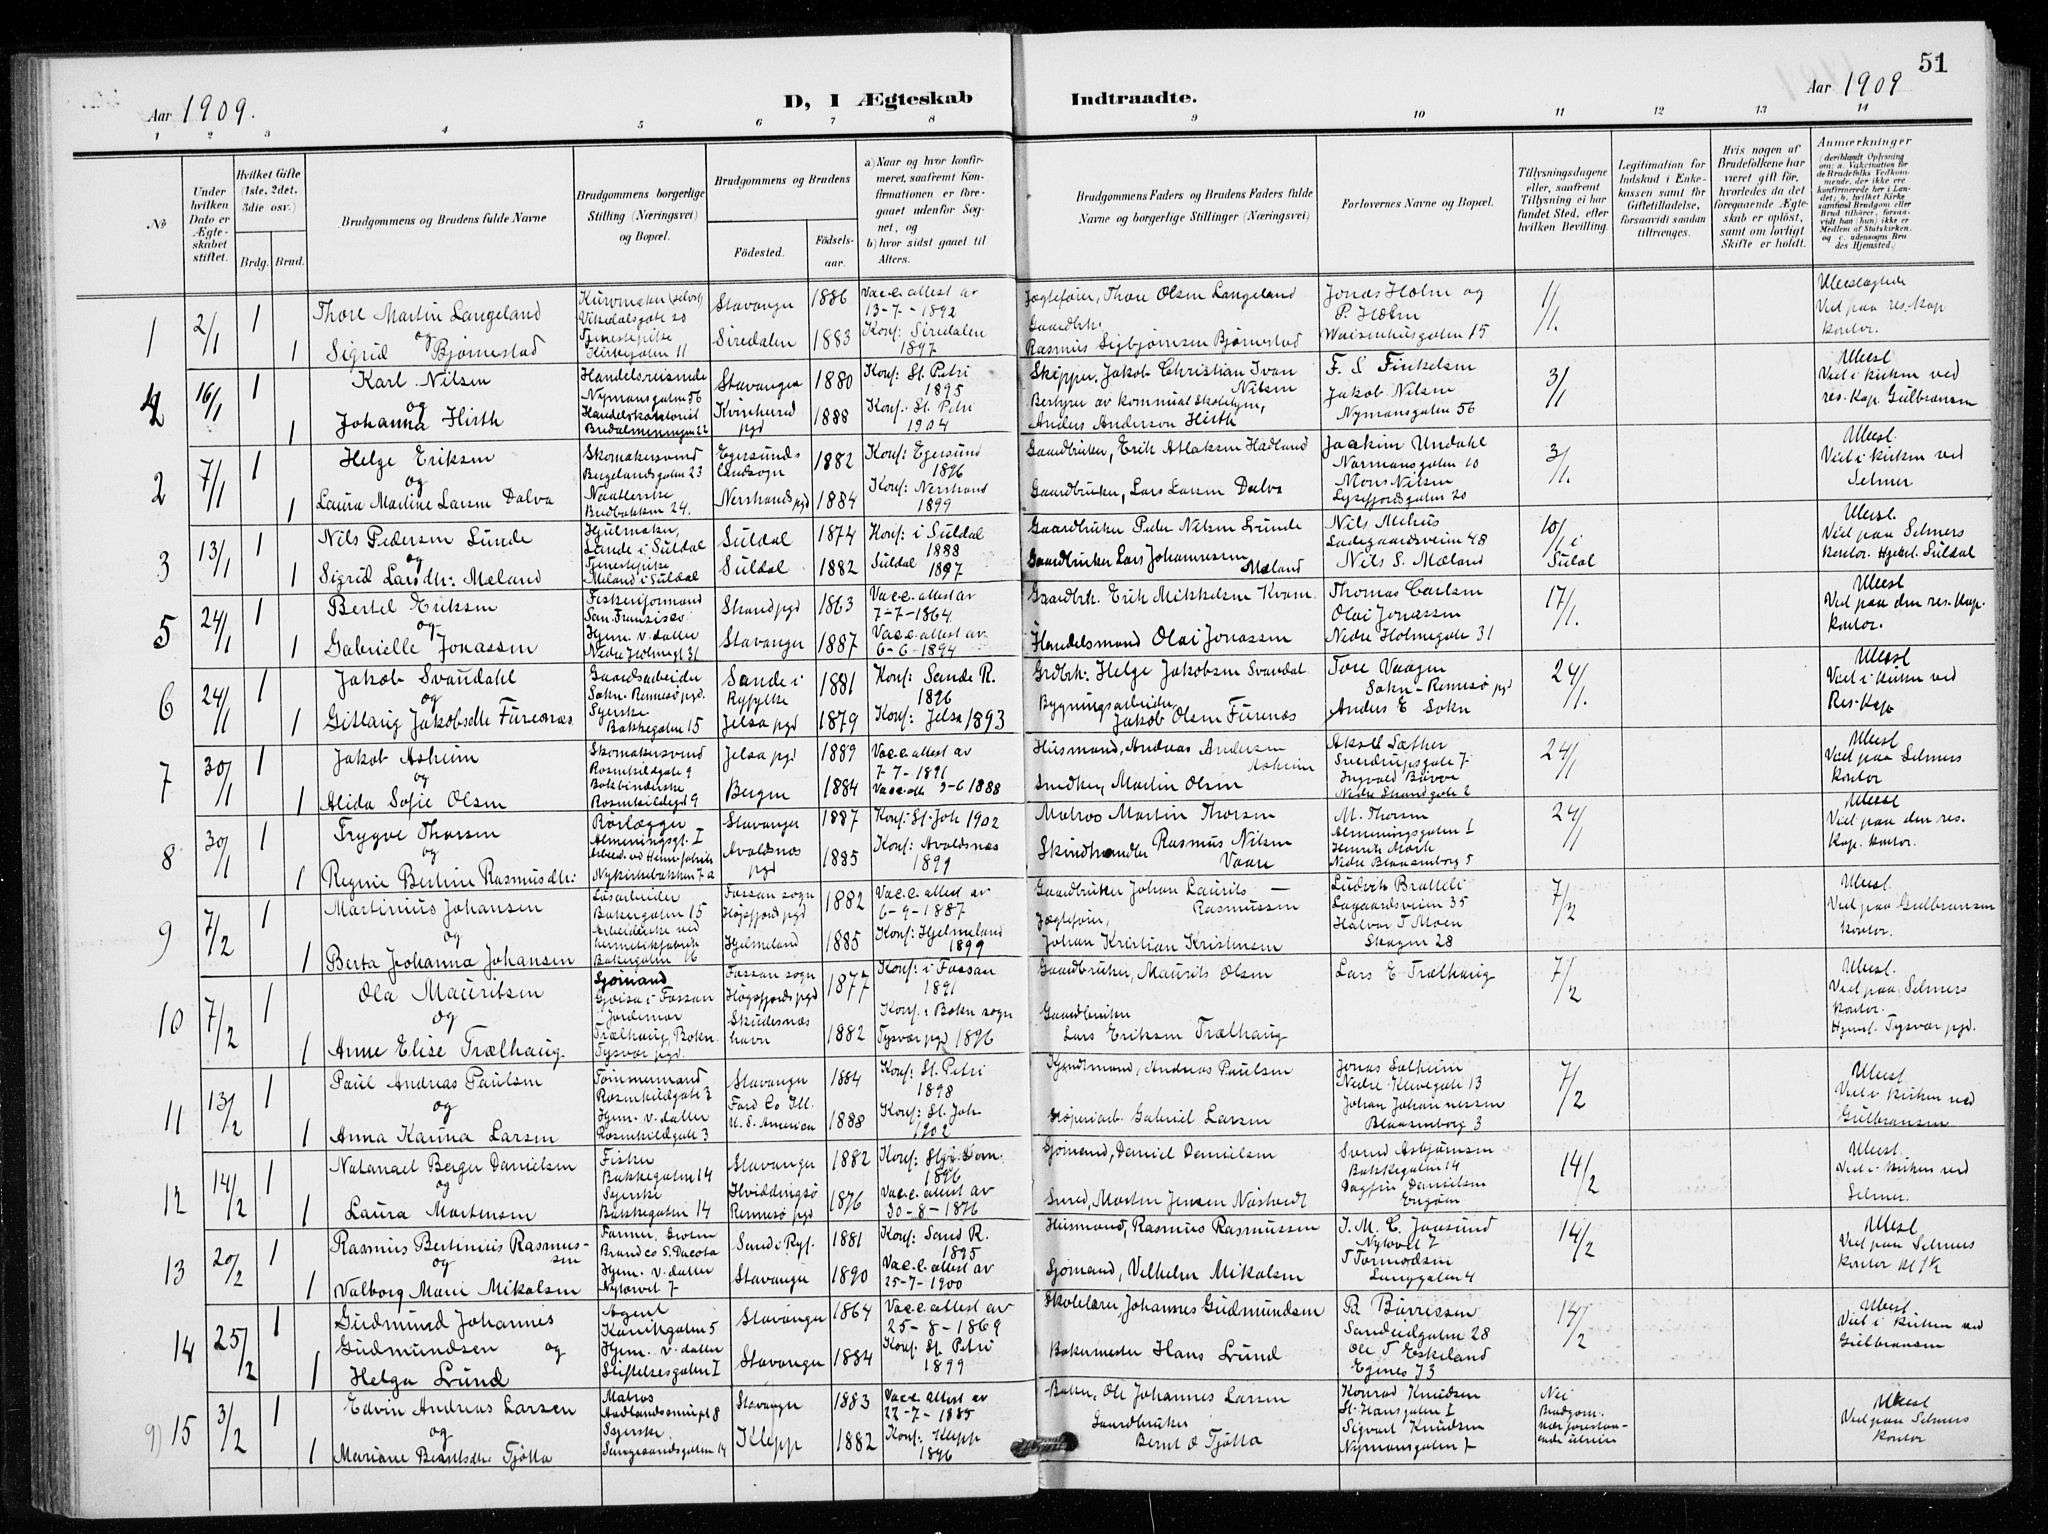 51
Aar 1909.
D, I Ægteskab Indtraadte.
Aar 1909
1 2 3 4 5 6 7 8 9 10 11 12 13 14
No
Under hvilken Dato er Ægteskabet stiftet.
Hvilket Gifte (1ste, 2det, 3die osv.)
Brdg. Brud.
Brudgommens og Brudens fulde Navne
Brudgommens borgerlige Stilling (Næringsvei) og Bopæl.
Brudgommens og Brudens
Fødested. Fødselsaar.
a) Naar og hvor konfirmeret, saafremt Konfirmationen er foregaaet udenfor Sognet, og
b) hvor sidst gaaet til Alters.
Brudgommens Faders og Brudens Faders fulde Navne og borgerlige Stillinger (Næringsvei)
Forlovernes Navne og Bopæl.
Tillysningsdagene eller, saafremt Tillysning ei har fundet Sted, efter hvilken Bevilling.
Legitimation for Indskud i Enkekassen samt for Giftetilladelse, forsaavidt saadan tiltrænges.
Hvis nogen af Brudefolkene har været gift før, hvorledes da det foregaaende Ægteskab er opløst, samt om lovligt Skifte er holdt.
Anmærkninger
(deriblandt Oplysning om: a. Vakcination for de Brudefolks Vedkommende, der ikke ere konfirmerede her i Landet; b. hvilket Kirkesamfund Brudgom eller Brud tilhører, forsaavidt han (hun) ikke er Medlem af Statskirken, og c. udensogns Brudes Hjemsted.
1 2/1 1 Thore Martin Langeland Kurvmaker (selvst) Vikedalsgate 20 Stavanger 1886 Vac.c. attest av 13-7-1892 Jægtefører, Thore Olsen Langeland Jonas Holm og P. Holm 1/1. Ubeslægtede Viet paa res. kap. kontor.
og
1 Sigrid Bjørnestad Tjenestepike Kirkegaten 11 Siredalen 1883 Konf: Siredalen 1897 Gaardbrk. Rasmus Sigbjørnsen Bjørnestad Waisenhusgaten 15
4 16/1 1 Karl Nilsen Handelsreisende Nymansgaten 56 Stavanger 1880 Konf: St. Petri 1895 Skipper, Jakob Christian Ivan Nilsen F. S. Finkelsen Jakob Nilsen Nymansgaten 56 3/1 Ubesl Viet i kirken ved res. kap. Gulbransen
og
1 Johanna Hirth Handelskontorist Bredalmenningen 22 Kvinherred pgd 1888 Konf. St. Petri 1904 Bestyrer av kommunal skolehjem, Anders Anderson Hirth
2 7/1 1 Helge Eriksen Skomakersvend Bergelandsgaten 23 Egersunds Landsogn 1882 Konf: Egersund 1896 Gaardbruker, Erik Atlaksen Hadland Joakim Undahl Normansgaten 10 Mons Nilsen Lysefjordsgaten 20 3/1. Ubesl. Viet i kirken ved Selmer
og
1 Laura Martine Larsen Dalva Naatterske Bredbakken 24. Nerstrands pgd 1884 Konf: Nerstrand 1899 Gaardbruker, Lars Larsen Dalva
3 13/1 1 Nils Pedersen Lunde Hjulmaker, Lunde i Suldal Suldal 1874 Konf: i Suldal 1888 Gaardbruker Peder Nilsen Lunde Nils Mehus Ladegaardsveien 48 Nils S. Mæland 10/1 i Suldal Ubesl. Viet paa Selmers kontor. Hjemst. Suldal
og
1 Sigrid Larsdtr: Mæland Tjenestepike Mæland i Suldal Suldal 1882 Suldal 1897 Gaardbruker Lars Johannessen Mæland
5 24/1 1 Bertel Eriksen Fiskeriformand San Franzisco Strand pgd 1863 Vac.c. attest av 7-7-1864 Gaardbrk. Erik Mikkelsen Kvam Thomas Carlsen Olai Jonassen Nedre Holmegate 31 17/1. Ubesl Viet paa den res. kap. kontor.
og
1 Gabrielle Jonassen Hjem. v. datter Nedre Holmegt 31 Stavanger 1887 Vac.c. attest av 6-6-1894 Handelsmand Olai Jonassen
6 24/1 1 Jakob Svandahl Gaardsarbeider Sokn. Rennesø pgd. Sande i Ryfylke 1881 Konf: Sande R. 1896 Grdbrk. Helge Jakobsen Svandal Tore Vaagen Sokn - Rennesø pgd Anders E Sokn 24/1. Ubesl Viet i kirken ved Res. kap
og
1 Gitlaug Jakobsdtr Furenæs Syerske Bakkegaten 15 Jelsa pgd 1879 Konf: Jelsa 1893 Bygningsarbeider, Jakob Olsen Furenæs
7 30/1 1 Jakob Asheim Skomakersvend Rosenkildegt 9 Jelsa pgd 1889 Vac.c. attest av 7-7-1891 Husmand, Andreas Andersen Asheim Aksel Sæther Sverdrupsgate 7 Ingvald Børve Nedre Strandgate 2 24/1 Ubesl Viet paa Selmers kontor
og
1 Alida Sofie Olsen Bokbinderske Rosenkildegt 9 Bergen 1884 1888 Snedker, Martin Olsen
8 30/1 1 Trygve Thorsen Rørlægger Almeningsgt. I Stavanger 1887 Konf: St. Joh 1902 Matros Martin Thorsen M. Thorsen Almeningsgaten I Henrik Mork Nedre Blaasenborg 5 24/1 Ubesl Viet paa den res. kap. kontor.
og
1 Regine Bertine Rasmusdtr: Nykirkebakken 7a Avaldsnæs pgd 1885 Konf: Avaldsnæs 1899 Skindhandler Rasmus Nilsen Vaare
9 7/2 1 Martinius Johansen Løsarbeider Bakkegaten 15 Fossan sogn Høgsfjord pgd 1882 Vac.c. attest av 6-9-1887 Gaardbruker Johan Laurits - Rasmussen Ludvik Bratteli Lagaardsveien 35 Halvor T Moen Skagen 28 7/2 Ubesl. Viet paa Gulbransen kontor.
og
1 Berta Johanna Johansen Arbeiderske ved hermetikfabrik Bakkegaten 16 Hjelmeland 1885 Konf: Hjelmeland 1899 Jægtefører, Johan Kristian Kristensen
10 7/2 1 Ola Mauritsen Sjømand Gjøisa i Fossan Fossan sogn Høgsfjords pgd 1877 Konf: i Fossan 1891 Gaardbruker, Maurits Olsen Lars E Trælhaug 7/2 Ubesl. Viet paa Selmers kontor. Hjemst. Tysvær pgd.
og
1 Anne Elise Trælhaug Jordemor Trælhaug, Bokn. Tysvær pgd. Skudesnæshavn 1882 Konf. i Bokn sogn Tysvær pgd 1896 Gaardbruker Lars Eriksen Trælhaug
11 13/2 1 Paul Andreas Paulsen Tømmermand Rosenkildegate 3 Stavanger 1884 Konf: St. Petri 1898 Kjendtmand, Andreas Paulsen Jonas Solheim Nedre Klevegate 13 Johan Johannessen Blaasenborg 3 7/2 Ubesl. Viet i kirken ved Gulbransen
og
1 Anna Karina Larsen Hjem. v. datter Rosenkildegate 3 Ford Co Ill. U. S. America 1888 Konf: St. Joh. 1902 Støperiarb. Gabriel Larsen
12 14/2 1 Natanael Berger Danielsen Fisker Bakkegaten 14 Stavanger 1882 Konf: 1896 Sjømand, Daniel Danielsen Svend Asbjørnsen Bakkegaten 14 Dagfin Danielsen Engøen 14/2 Ubesl. Viet i kirken ved Selmer.
og
1 Laura Mortensen Syerske Bakkegaten 14 Hviddingsø Rennesø pgd 1876 Vac.c. attest av 30-8-1876 Smed, Morten Jensen Næshedt
13 20/2 1 Rasmus Bertinius Rasmussen Farmer, Groton Brand co S. Dacota Sand i Ryf. 1881 Konf: Sand R. 1895 Husmand, Rasmus Rasmussen I. M. C. Jaasund Nytorvet 7 T Tormodsen Langgaten 4 14/2 Ubesl. Viet paa Selmers kontor kl 7½
og
1 Valborg Marie Mikalsen Hjem. v. datter Nytorvet 7 Stavanger 1890 Vac.c. attest av 25-7-1900 Sjømand, Vilhelm Mikalsen
14 25/2 1 Gudmund Johannes Gudmundsen og Agent Kanikgaten 5 Stavanger 1864 Vac.c. attest av 25-8-1869 Skolelærer Johannes Gudmundsen B. Børresen Sandeidgaten 28 Ole T Eskeland Egenes 73 14/2 Ubesl Viet i kirken ved Gulbransen
1 Helga Lund Hjem. v. datter Stiftelsesgaten I Stavanger 1884 Konf: St. Petri 1899 Bakermester Hans Lund
9) 15 3/2 1 Edvin Andreas Larsen Matros Stavanger 1883 Vac.c. attest av 22-7-1885 Baker, Ole Johannes Larsen Konrad Knudsen St. Hansgaten I Sigvart Knudsen Nymansgaten 7 Nei Brudgom. nærforestaaende utreise Ubesl Viet paa Selmers kontor
og
1 Mariane Berntsdtr. Tjøtta Syerske Klepp 1882 Konf: Klepp 1896 Gaardbruker Bernt O Tjøtta